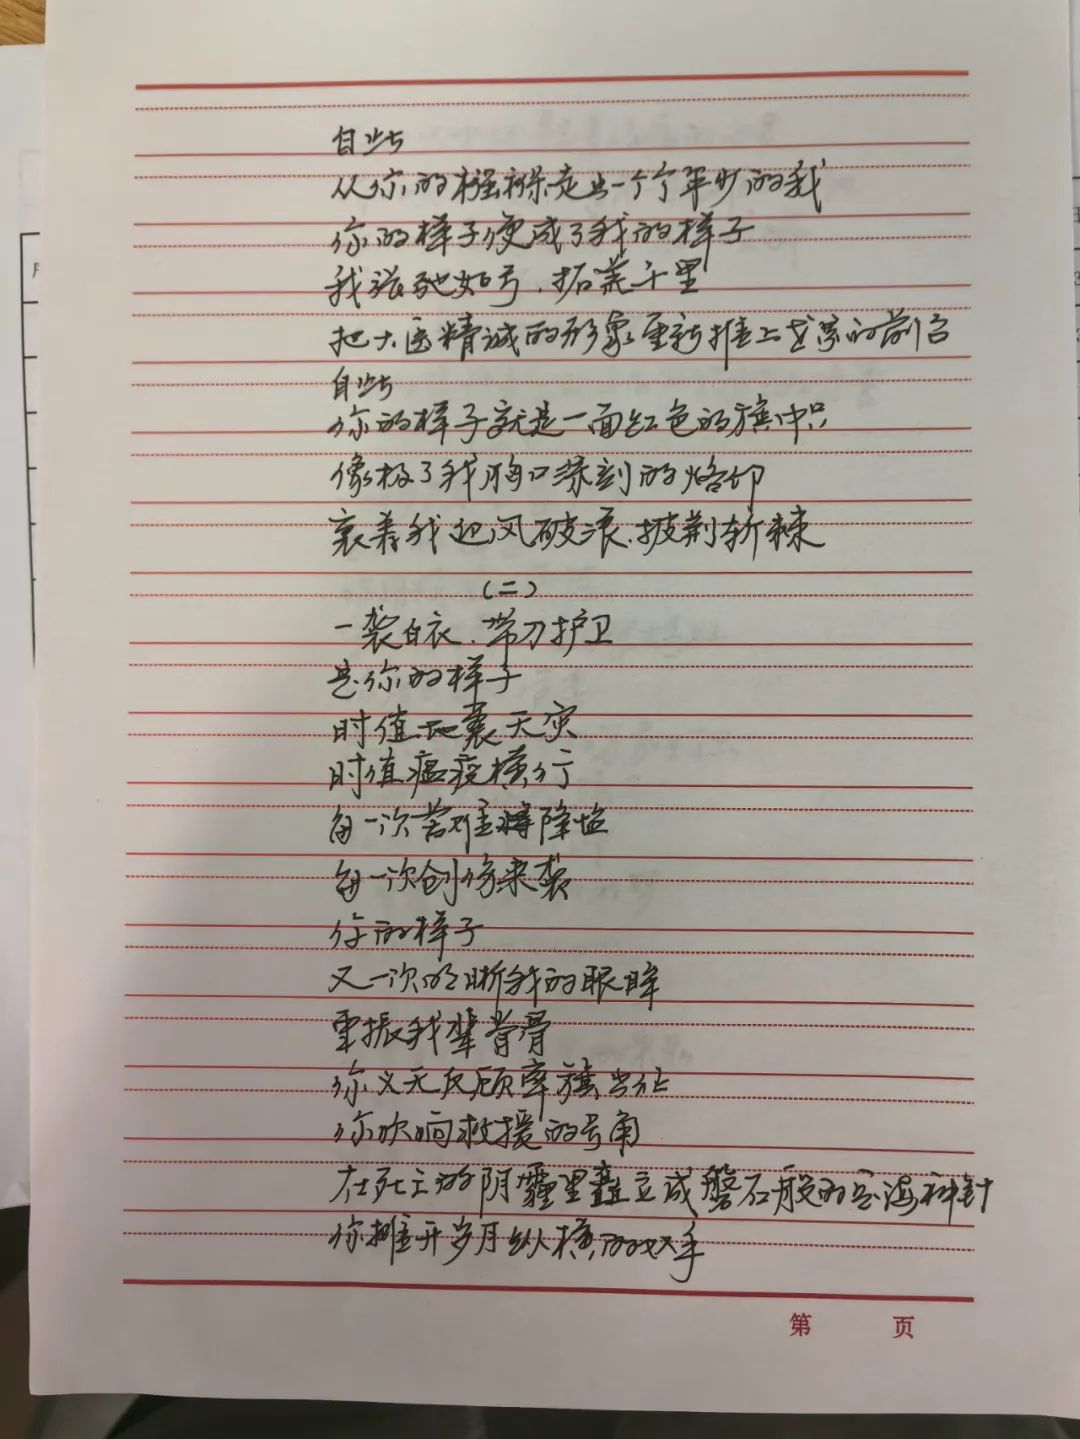 自此
从你的襁褓走出一个个年少的我
你的样子便成了我的样子
我张弛如弓、拓荒千里
把大医精诚的形象重新推上的前台
自此
你的样子就是一面红色的旗帜
像极了我胸口深刻的烙印
裹着我迎风破浪、披荆斩棘
(二)
一袭白衣、带刀护卫
是你的样子
时值地裹天灾
时值瘟疫横行
每一次苦难将降临
每一次创伤来袭
你的样子
又一次明晰我的眼眸
重振我辈脊骨
你义无反顾率旗出征
你吹响救援的号角
在死亡的阴霾里矗立成磐石般的定海神针
你推开岁月纵横的双手
第 页